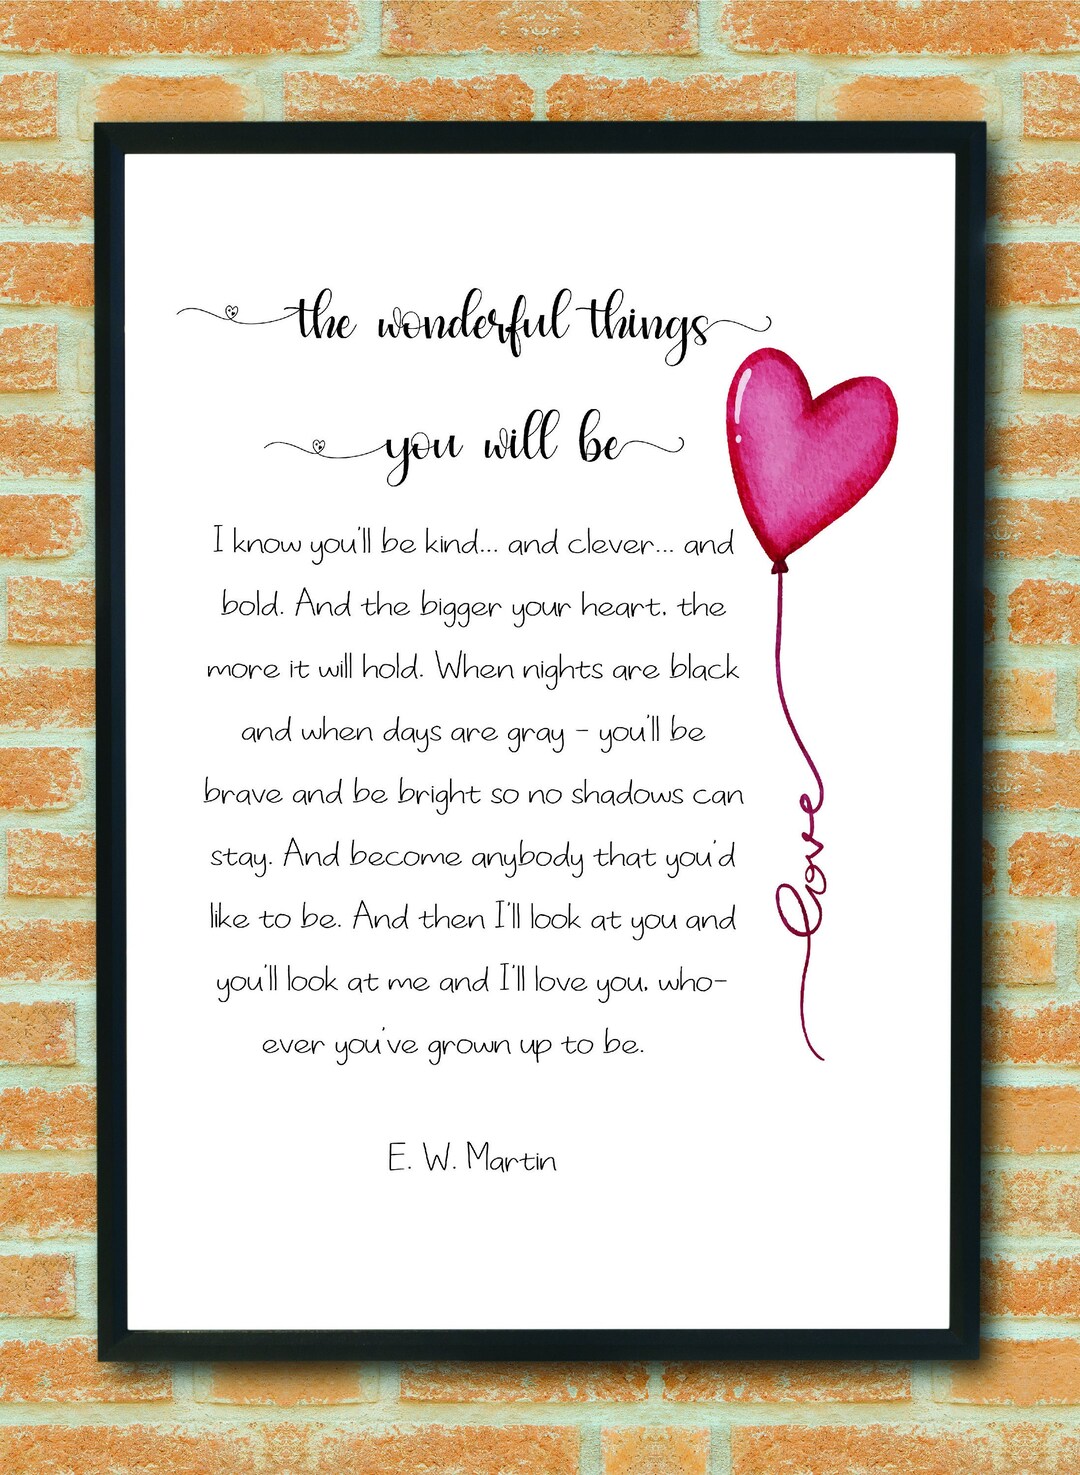 the wonderful things
you will be
I know you'll be kind... and clever... and
bold. And the bigger your heart, the
more it will hold. When nights are black
and when days are gray - you'll be
brave and be bright so no shadows can
stay. And become anybody that you'd
like to be. And then I'll look at you and
you'll look at me and I'll love you, who-
ever you've grown up to be.
love
E. W. Martin